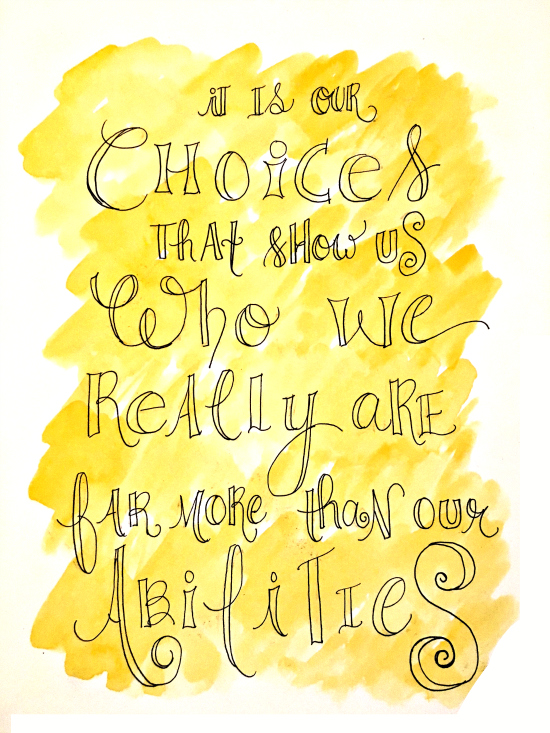 it is our
CHOiCeS
ThAt SHow us
Who we
ReAlly aRE
fAR MORe thaN our
ABiliTIeS